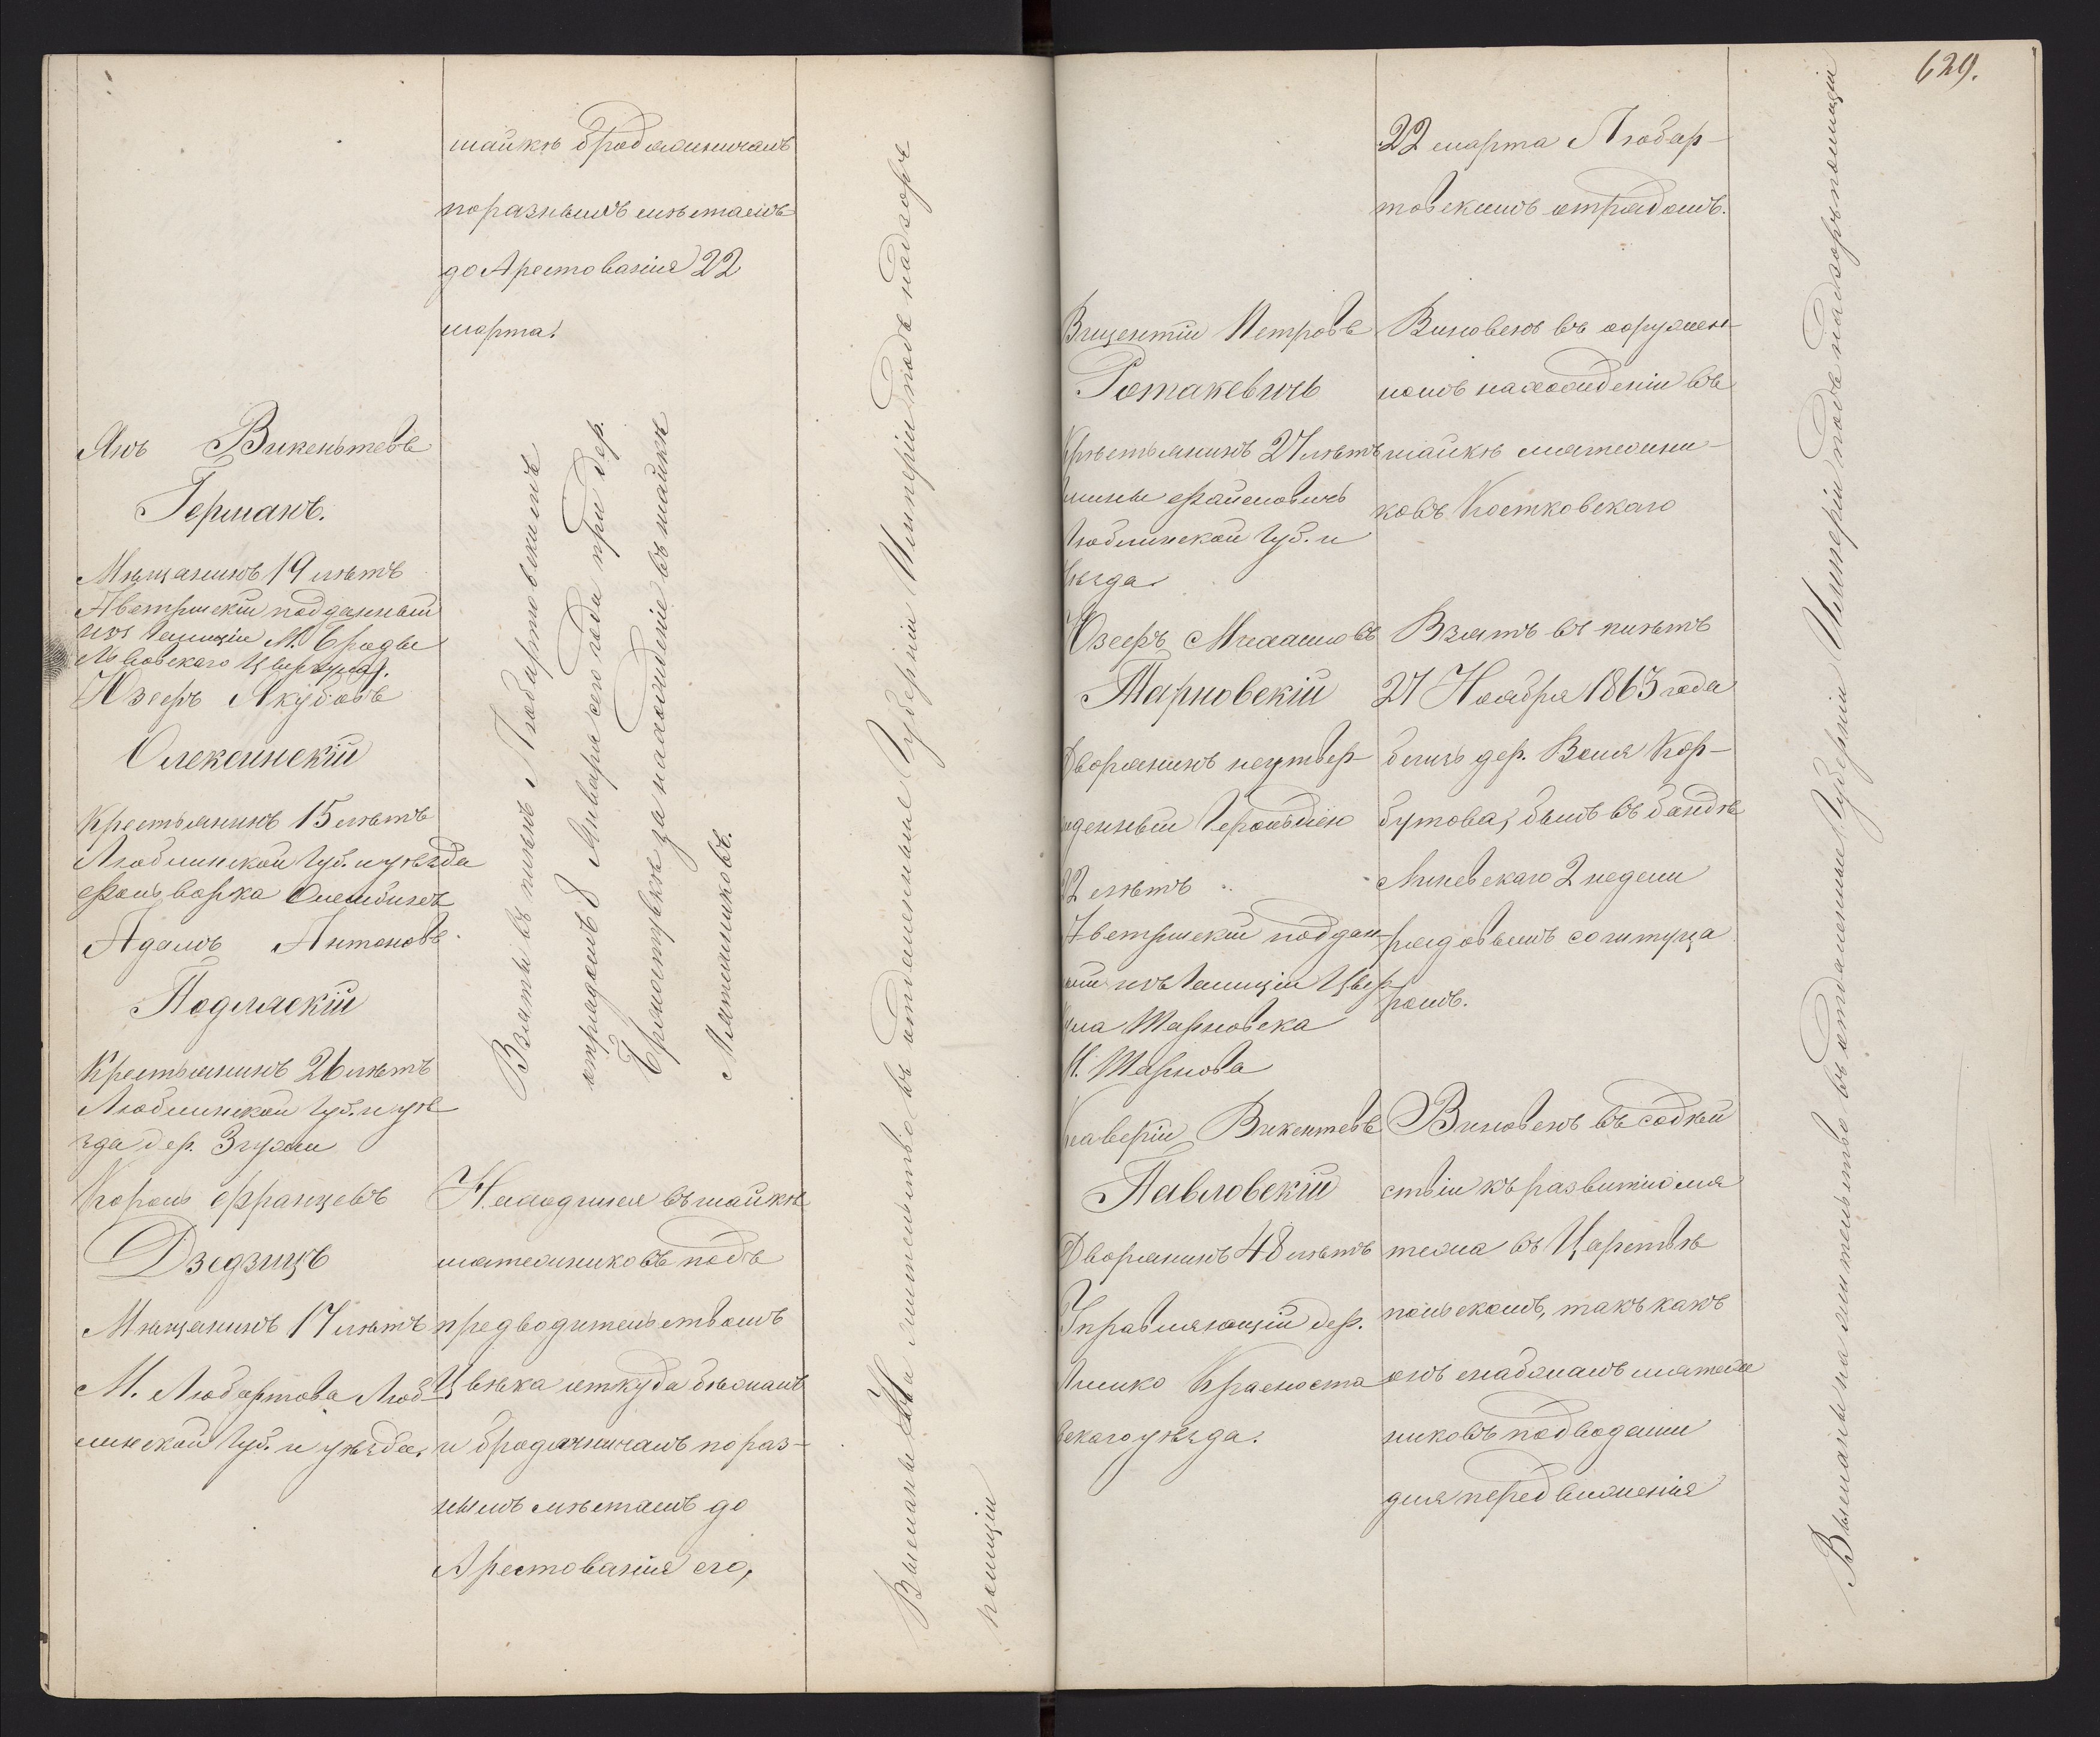 шайкѣ бродяжничалъ
поразнымъ мѣстамъ
до Арестованія 22
марта.
Янъ Викентьевъ
Германъ.
Мѣщанинъ 19 лѣтъ
Австрійскій подданный
изъ Галиціи М. Броды
Львовскаго Циркула.
Юзефъ Якубовъ
Олексинскій
Крестьянинъ 15 лѣтъ
Люблинской Губ. и уѣзда
фольварка
Адамъ Антоновъ
Подляскій
Крестьянинъ 26 лѣтъ
Люблинской Губ. и уѣ
зда дер.
Взяты въ плѣнъ Любартовскимъ
отрядомъ 8 Января сего года при дер.
за нахожденіе въ шайкѣ
Мятежниковъ.
Кароль Францевъ
Дзедзицъ
Мѣщанинъ 17 лѣтъ
М. Любартова Люб-
линской Губ. и уѣзда.
Находился въ шайкѣ
мятежниковъ подъ
предводительствомъ
Цвѣка откуда бѣжалъ
и бродяжничалъ по раз-
нымъ мѣстамъ до
Арестованія его,
Высланы на жительство въ отдаленныя Губерніи Имперіи подъ надзоръ
полиціи
629.
22 марта Любар-
товскимъ отрядомъ.
Вицентій Петровъ
Ротакевичъ
Крестьянинъ 27 лѣтъ
Люблинской Губ. и
уѣзда
Виновенъ въ вооружен-
номъ нахожденіи въ
шайкѣ мятежни-
ковъ Костковскаго
Юзефъ Михайловъ
Тарновскій
Дворянинъ неутвер-
жденный Герольдіею
22 лѣтъ
Австрійскій поддан-
ный изъ Галиціи Цир-
кула Тарновска
М. Тарнова
Взятъ въ плѣнъ
27 Ноября 1863 года
близь дер. Воля Кор-
бутова, былъ въ бандѣ
2 недели
рядовымъ со штуца
ромъ.
Ксаверій Викентьевъ
Павловскій
Дворянинъ 48 лѣтъ
Управляющій дер.
Красноста
вскаго уѣзда.
Виновенъ въ содѣй
ствіи къ развитію мя
тежа въ Царствѣ
польскомъ, такъ какъ
онъ снабжалъ мятеж
никовъ подводами
для передвиженія
Высланы на жительство въ отдаленныя Губерніи Имперіи подъ надзоръ полиціи